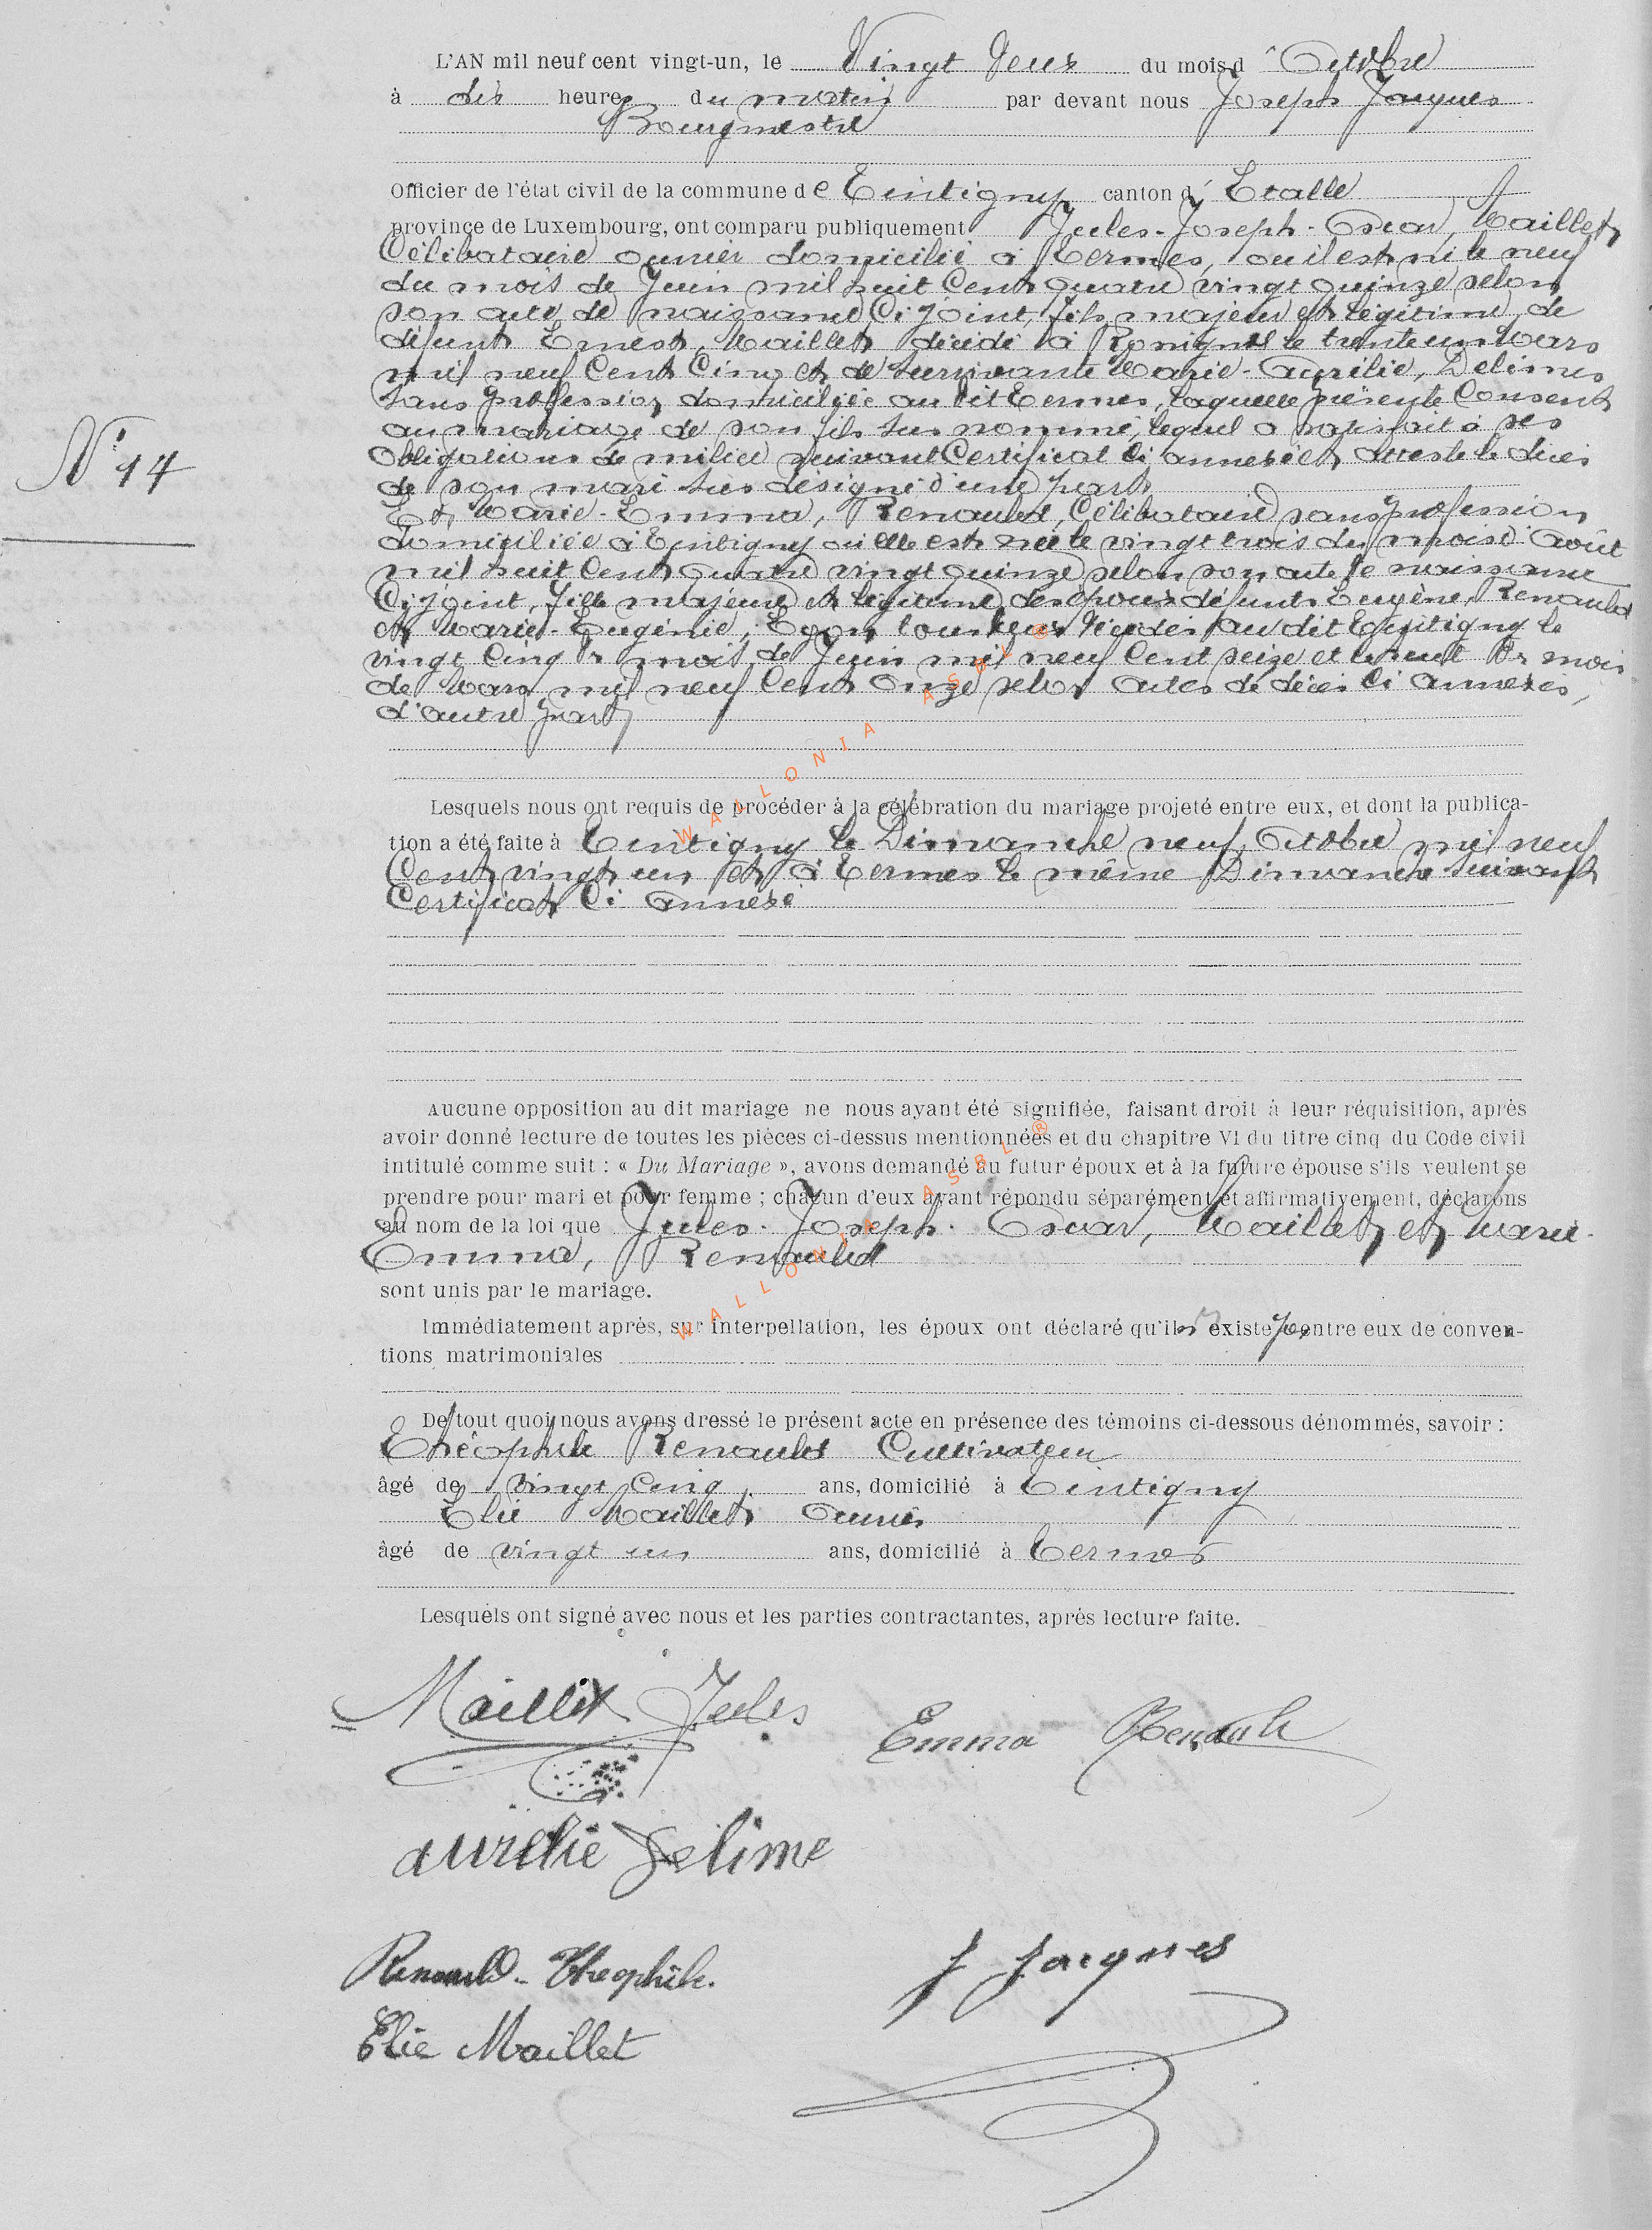 L'AN mil neuf cent vingt-un, le Vingt deux du mois d' Octobre
à dix heures du matin par devant nous Joseph Jacques
Bourgmestre
Officier de l'état civil de la commune de Tintigny canton d' Etalle
province de Luxembourg, ont comparu publiquement Jules-Joseph-Oscar, Maillet,
Célibataire ouvrier domicilié à Termes, où il est né le neuf
du mois de Juin mil huit Cent quatre vingt quinze selon
son acte de naissance Ci joint, fils majeur et légitime de
défunt Ernest, Maillet décédé à le trente un Mars
mil neuf Cent Cinq et de survivante Marie-Aurélie, Delimes
Sans profession domiciliée au dit Termes, laquelle présente Consent
au mariage de son fils sus nommé, lequel a satisfait à ses
Obligations de milice suivant Certificat Ci annexé et atteste le décès
de son mari sus désigné d'une part
Et Marie-Emma, Renauld, Célibataire sans profession
domiciliée à Tintigny où elle est née le vingt trois du mois d' Août
mil huit Cent quatre vingt quinze selon son acte de naissance
Ci joint, fille majeure et légitime des époux défunts Eugène, Renauld
et Marie-Eugénie, tous deux décédés au dit Tintigny le
vingt Cinq du mois de Juin mil neuf Cent seize et le du mois
de Mars mil neuf Cent onze selon actes de décès Ci annexés,
d'autre part
Lesquels nous ont requis de procéder à la célébration du mariage projeté entre eux, et dont la publica-
tion a été faite à Tintigny le Dimanche neuf Octobre mil neuf
Cent vingt un et à Termes le même Dimanche suivant
Certificat Ci annexé
Aucune opposition au dit mariage ne nous ayant été signifiée, faisant droit à leur réquisition, après
avoir donné lecture de toutes les pièces ci-dessus mentionnées et du chapitre VI du titre cinq du Code civil
intitulé comme suit : « Du Mariage », avons demandé au futur époux et à la future épouse s'ils veulent se
prendre pour mari et pour femme ; chacun d'eux ayant répondu séparément et affirmativement, déclarons
au nom de la loi que Jules-Joseph-Oscar, Maillet et Marie-
Emma, Renauld
sont unis par le mariage.
Immédiatement après, sur interpellation, les époux ont déclaré qu'il n'existe pas entre eux de conven-
tions matrimoniales
De tout quoi nous avons dressé le présent acte en présence des témoins ci-dessous dénommés, savoir :
Théophile Renauld Cultivateur
âgé de vingt cinq ans, domicilié à Tintigny
Elie Maillet Ouvrier
âgé de vingt un ans, domicilié à Termes
Lesquels ont signé avec nous et les parties contractantes, après lecture faite.
N° 14
Maillet Jules
Emma Renauld
aurélie Delime
Renauld-Théophile.
J Jacques
Elie Maillet
WALLONIA ASBL ®
WALLONIA ASBL ®